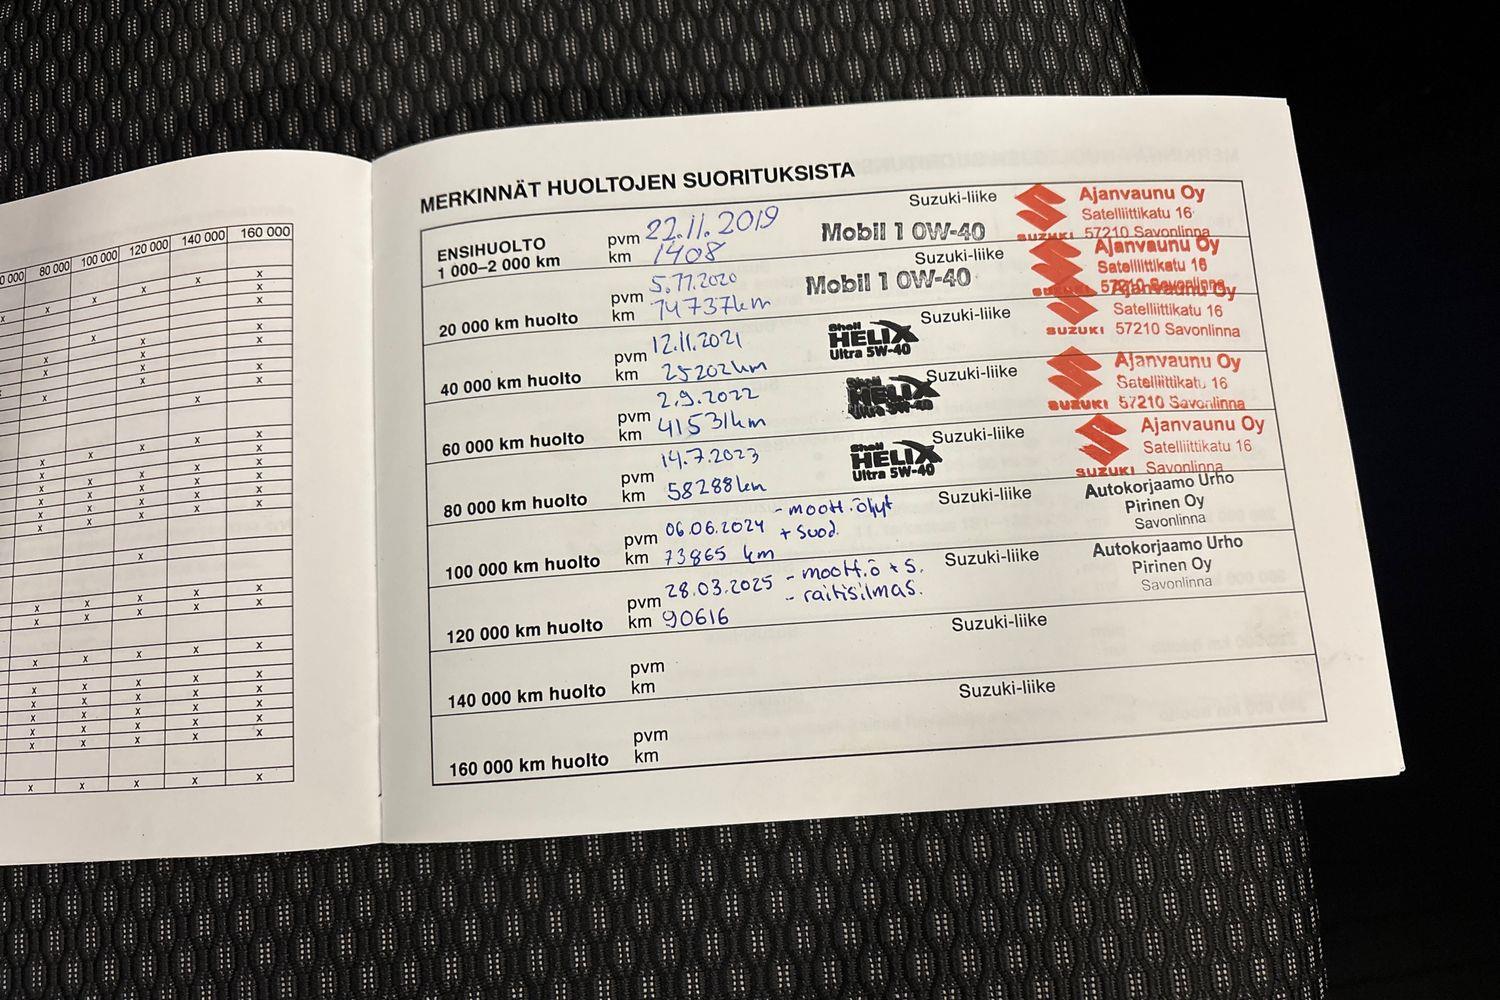 0 000 80 000 100 000 120 000 140 000 160 000
MERKINNÄT HUOLTOJEN SUORITUKSISTA
ENSIHUOLTO
1 000–2 000 km
pvm 22.11.2019
km 1408
Mobil 1 0W-40
Suzuki-liike
SUZUKI
Ajanvaunu Oy
Satelliittikatu 16
57210 Savonlinna
20 000 km huolto
pvm 5.11.2020
km 14737km
Mobil 1 0W-40
Suzuki-liike
Ajanvaunu Oy
Satelliittikatu 16
57210 Savonlinna
40 000 km huolto
pvm 12.11.2021
km 25202km
Shell
HELIX
Ultra 5W-40
Suzuki-liike
SUZUKI
Ajanvaunu Oy
Satelliittikatu 16
57210 Savonlinna
60 000 km huolto
pvm 2.9.2022
km 41531km
Shell
HELIX
Ultra 5W-40
Suzuki-liike
SUZUKI
Ajanvaunu Oy
Satelliittikatu 16
57210 Savonlinna
80 000 km huolto
pvm 14.7.2023
km 58288km
Shell
HELIX
Ultra 5W-40
Suzuki-liike
SUZUKI
Ajanvaunu Oy
Satelliittikatu 16
Savonlinna
100 000 km huolto
pvm 06.06.2024 - moott.öljyt
km 73865 km + suod.
Suzuki-liike
Autokorjaamo Urho
Pirinen Oy
Savonlinna
120 000 km huolto
pvm 28.03.2025 - moott.ö + s.
km 90616 - raitisilmas.
Suzuki-liike
Autokorjaamo Urho
Pirinen Oy
Savonlinna
140 000 km huolto
pvm
km
Suzuki-liike
160 000 km huolto
pvm
km
Suzuki-liike